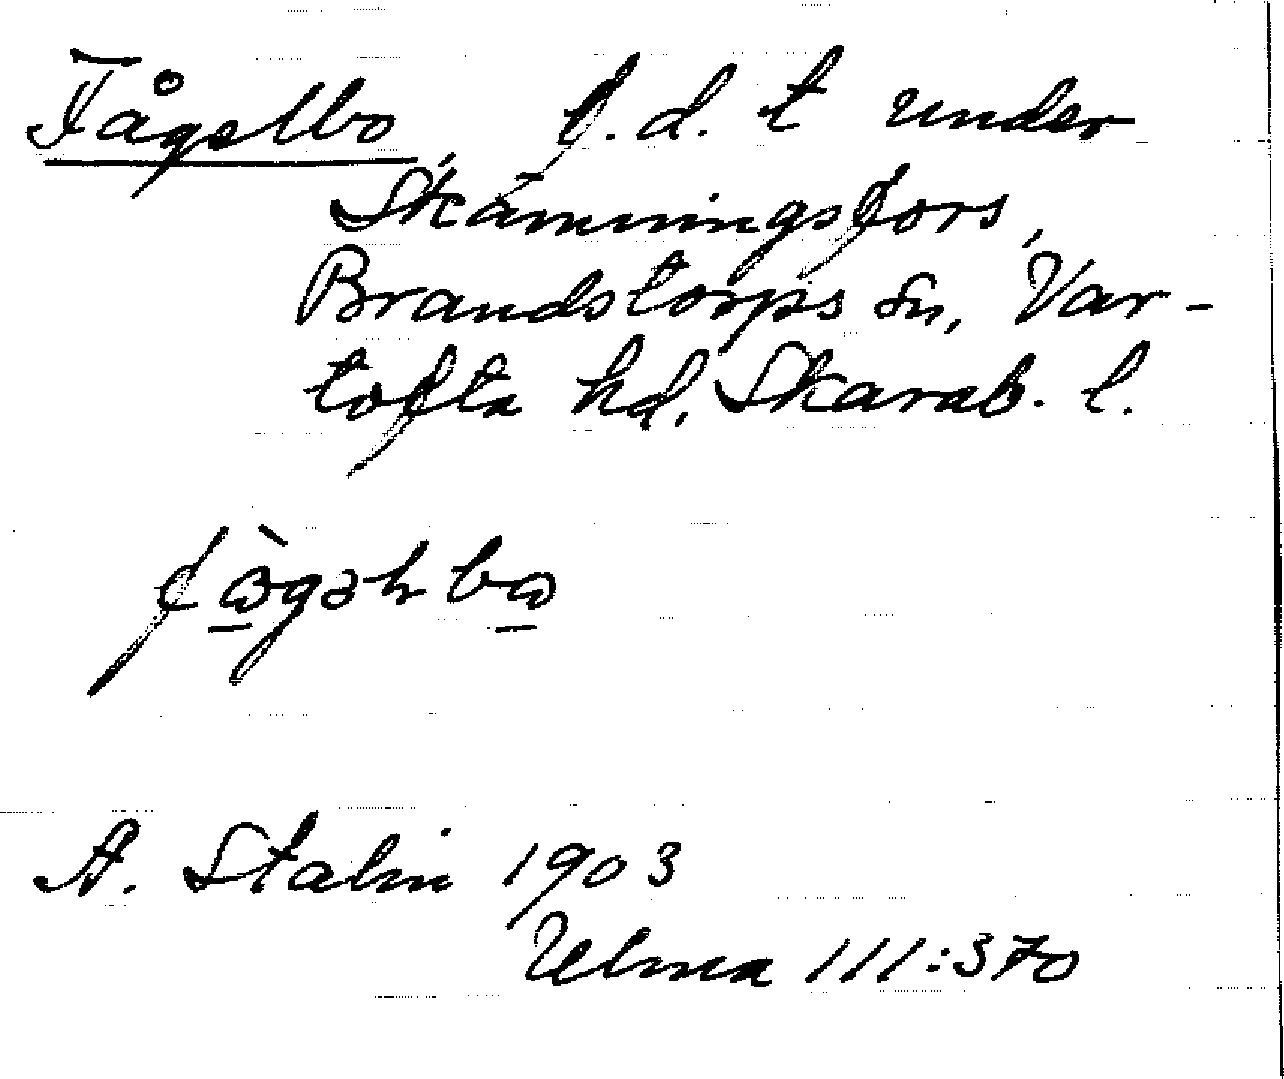 Fågelbo, f.d. t under
Skämningsfors,
Brandstorps sn, Var-
tofta hd, Skarab. l.
A. Stalin 1903
Ulma 111:370